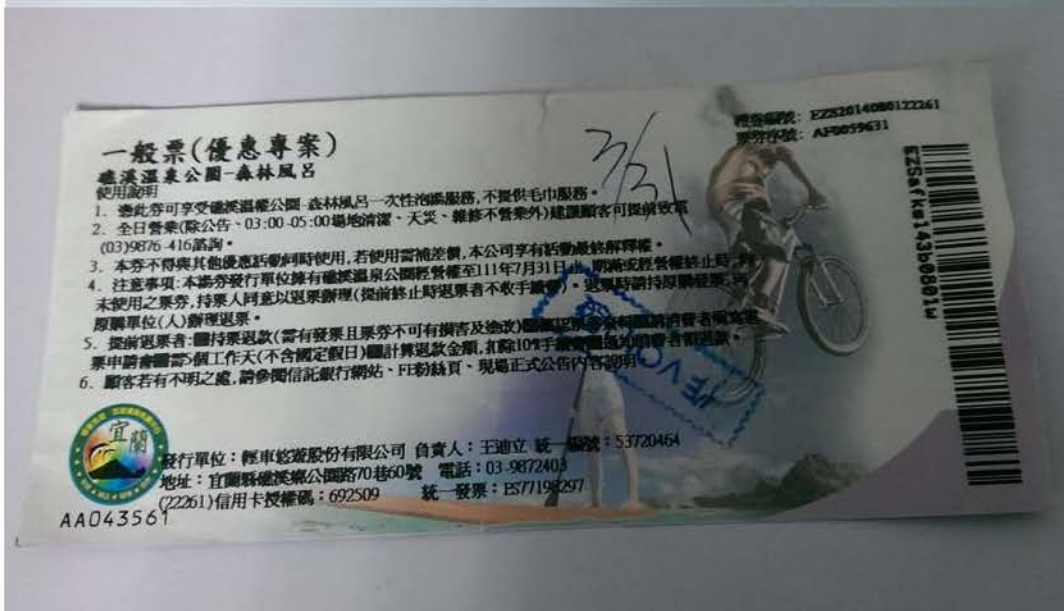 一般票(優惠專案)
礁溪溫泉公園-森林風呂
使用說明
1. 憑此券可享受礁溪溫泉公園-森林風呂一次性泡湯服務,不提供毛巾服務。
2. 全日營業(除公告、03:00-05:00場地清潔、天災、維修不營業外)建議顧客可提前致電
(03)9876-416諮詢。
3. 本券不得與其他優惠活動同時使用,若使用需補差價,本公司享有活動最終解釋權。
4. 注意事項:本湯券發行單位擁有礁溪溫泉公園經營權至111年7月31日止,期滿或經營權終止時,
未使用之票券,持票人同意以退票辦理(提前終止時退票者不收手續費)。退票時請持原購發票
原購單位(人)辦理退票。
5. 提前退票者:持票退款(需有發票且票券不可有損害及塗改)
票申請 需5個工作天(不含國定假日) 計算退款金額,扣除10%手續費
6. 顧客若有不明之處,請參閱信託銀行網站、FB粉絲頁、現場正式公告內容說明
3/31
票券序號: AF0059631
EZ82014080122261
宜蘭
發行單位:輕車悠遊股份有限公司 負責人:王迪立 統一編號:53720464
地址:宜蘭縣礁溪鄉公園路70巷60號 電話:03-9872403
(22261)信用卡授權碼:692509 統一發票:ES77198297
AA043561